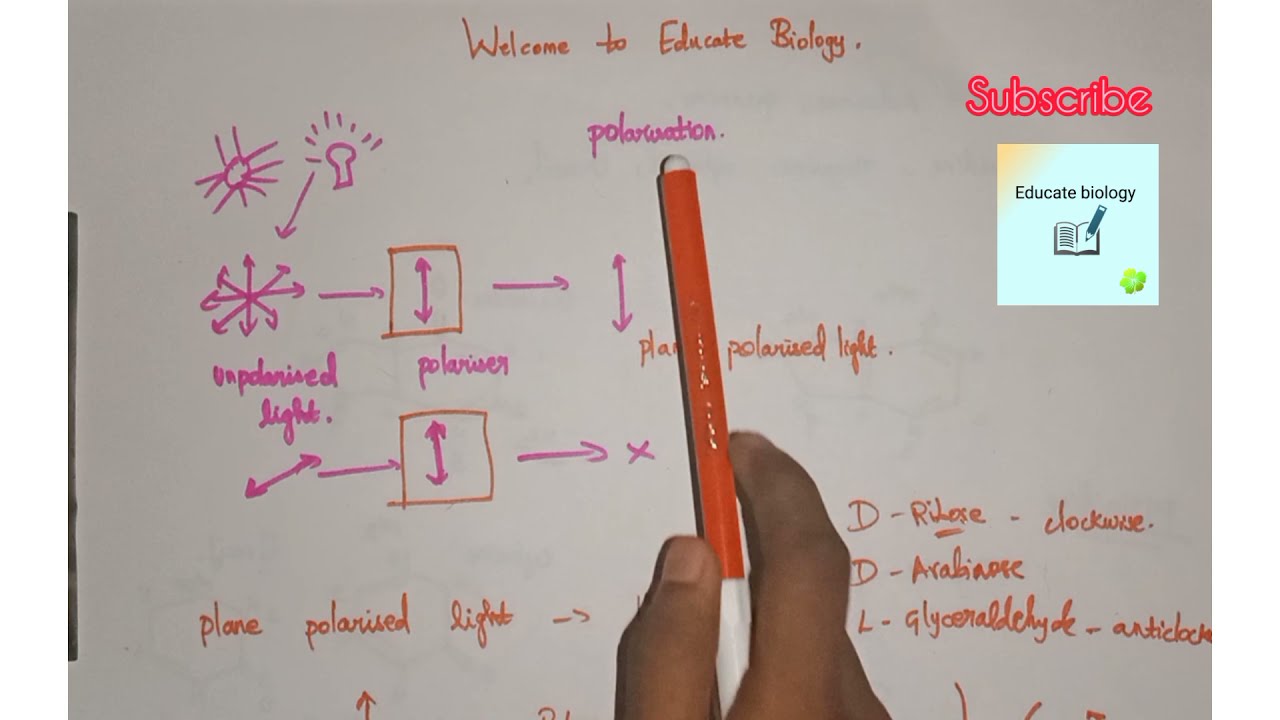 Welcome to Educate Biology.
Subscribe
polarisation.
Educate biology
polarised light.
unpolarised
light.
polariser
D - Ribose - clockwise.
D - Arabinose
L - Glyceraldehyde - anticlock
plane polarised light →